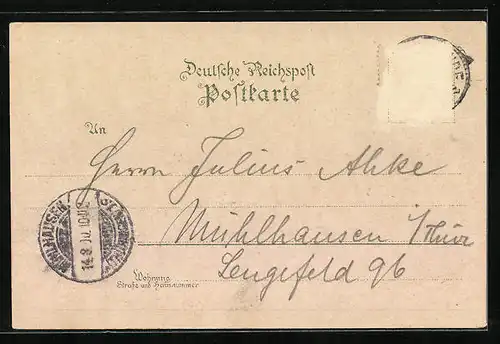 Deutsche Reichspost
Postkarte
An
Herrn Julius Ahke
Mühlhausen i/Thür
Lengefeld 96
Wohnung
Straße und Hausnummer
MÜHLHAUSEN
14.8.